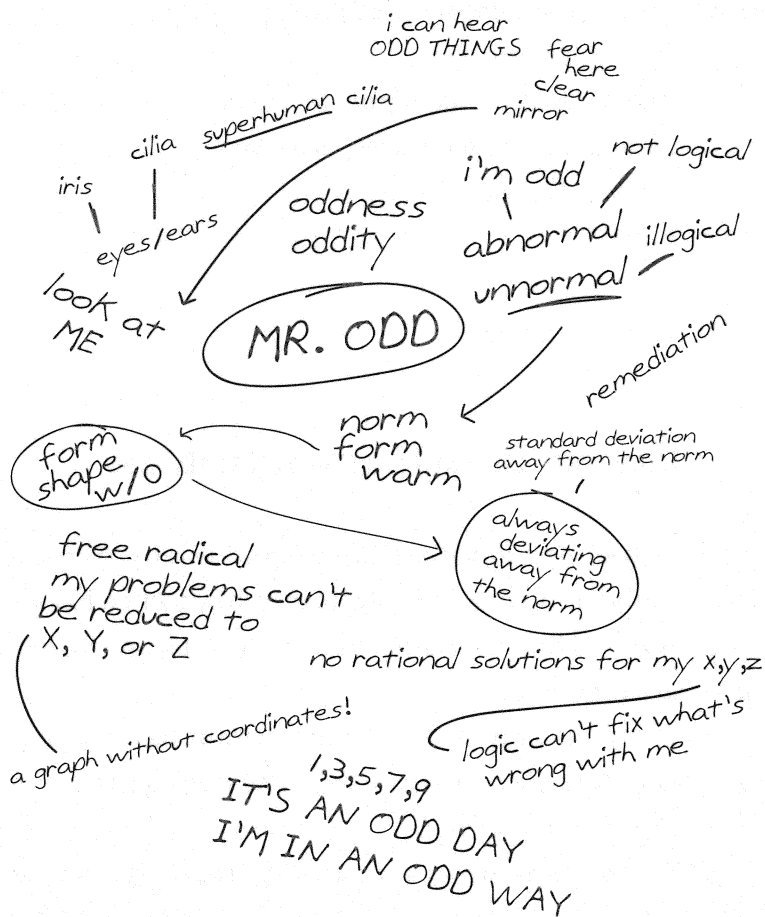 i can hear
ODD THINGS
fear
here
clear
mirror
cilia
superhuman cilia
iris
eyes/ears
look at
ME
oddness
oddity
i'm odd
not logical
abnormal
illogical
unnormal
MR. ODD
remediation
norm
form
warm
standard deviation
away from the norm
form
shape
w/o
always
deviating
away from
the norm
free radical
my problems can't
be reduced to
X, Y, or Z
no rational solutions for my x,y,z
a graph without coordinates!
logic can't fix what's
wrong with me
1,3,5,7,9
IT'S AN ODD DAY
I'M IN AN ODD WAY